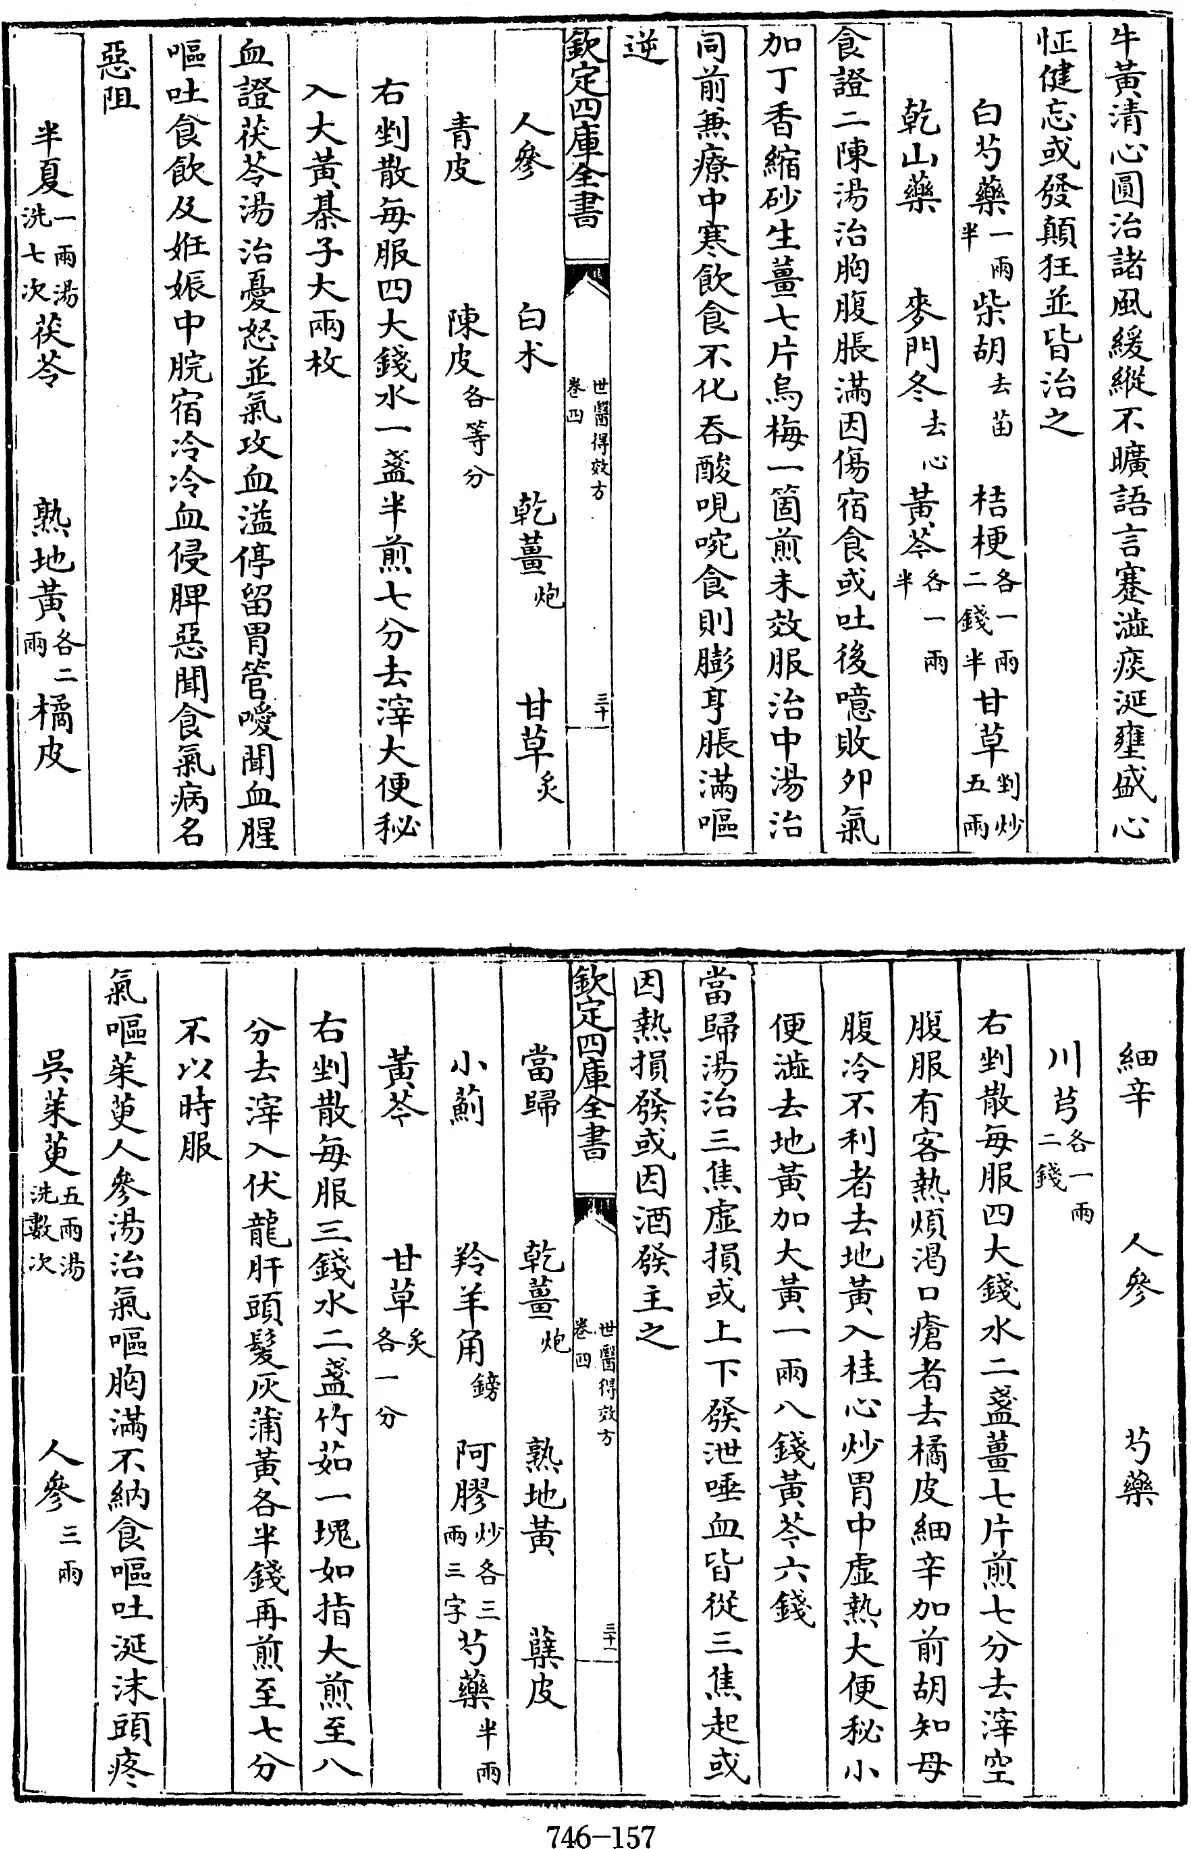 牛黃清心圓治諸風緩縱不曠語言蹇澁痰涎壅盛心
怔健忘或發顛狂並皆治之
白芍藥一兩半 柴胡去苗 桔梗各一兩二錢半 甘草剉炒五兩
乾山藥 麥門冬去心 黃芩各一兩半
食證二陳湯治胸腹脹滿因傷宿食或吐後噫敗卵氣
加丁香縮砂生薑七片烏梅一箇煎未效服治中湯治
同前兼療中寒飲食不化吞酸哯啘食則膨亨脹滿嘔
逆
欽定四庫全書 世醫得效方 卷四 三十
人參 白术 乾薑炮 甘草炙
青皮 陳皮各等分
右剉散每服四大錢水一盞半煎七分去滓大便秘
入大黃棊子大兩枚
血證茯苓湯治憂怒並氣攻血溢停留胃管噯聞血腥
嘔吐食飲及姙娠中脘宿冷冷血侵脾惡聞食氣病名
惡阻
半夏一兩湯洗七次 茯苓 熟地黃各二兩 橘皮
細辛 人參 芍藥
川芎各一兩二錢
右剉散每服四大錢水二盞薑七片煎七分去滓空
腹服有客熱煩渴口瘡者去橘皮細辛加前胡知母
腹冷不利者去地黃入桂心炒胃中虛熱大便秘小
便澁去地黃加大黃一兩八錢黃芩六錢
當歸湯治三焦虛損或上下發泄唾血皆從三焦起或
因熱損發或因酒發主之
欽定四庫全書 世醫得效方 卷四 三十一
當歸 乾薑炮 熟地黃 蘗皮
小薊 羚羊角鎊 阿膠炒各三兩三字 芍藥半兩
黃芩 甘草炙各一分
右剉散每服三錢水二盞竹茹一塊如指大煎至八
分去滓入伏龍肝頭髮灰蒲黃各半錢再煎至七分
不以時服
氣嘔茱萸人參湯治氣嘔胸滿不納食嘔吐涎沫頭疼
吳茱萸五兩湯洗數次 人參三兩
746-157